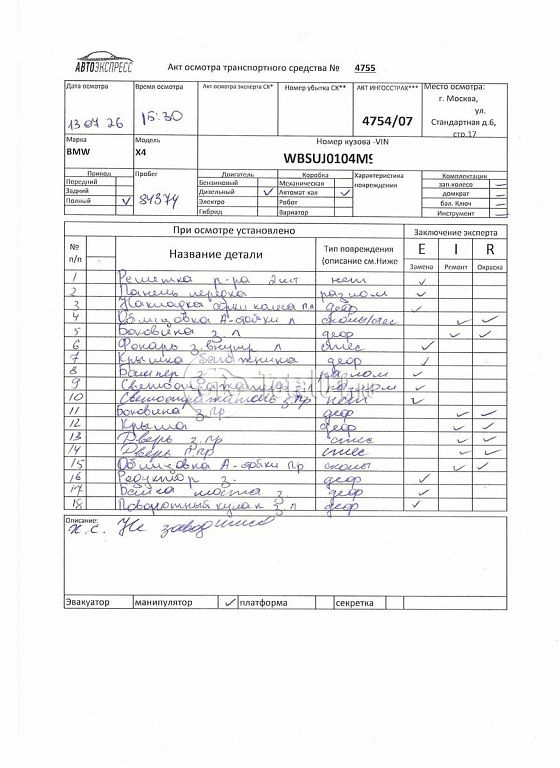 АВТОЭКСПРЕСС
Акт осмотра транспортного средства № 4755
Дата осмотра
Время осмотра
Акт осмотра эксперта СК*
Номер убытка СК**
АКТ ИНГОССТРАХ***
Место осмотра:
г. Москва,
ул.
Стандартная д.6,
стр.17
13 07 26
15:30
4754/07
Марка
Модель
Номер кузова -VIN
BMW
X4
WBSUJ0104M9
Привод
Пробег
Двигатель
Коробка
Характеристика повреждения
Комплектация
Передний
Бензиновый
Механическая
зап.колесо
Задний
Дизельный
Автомат кая
домкрат
Полный
84374
Электро
Робот
бал. Ключ
Гибрид
Вариатор
Инструмент
При осмотре установлено
Заключение эксперта
№ п/п
Название детали
Тип повреждения (описание см.Ниже
E
I
R
Замена
Ремонт
Окраска
1 Решетка р-ра 2шт нет
2 Панель передка разлом
3 Накладка арки колеса п л дефор
4 Облицовка А-стойки л сколы/отс
5 Боковина з л дефор
6 Фонарь з. внутр л отес
7 Крышка багажника дефор
8 Бампер з разлом
9 разлом
10 Светоотражатель з.пр нет
11 Боковина з пр дефор
12 Крыша дефор
13 Дверь з.пр отес
14 Дверь п.пр отес
15 Облицовка А-стойки пр сколы
16 Редуктор з. дефор
17 Балка моста з дефор
18 Поворотный кулак з л дефор
Описание:
х.с. Не заводится
Эвакуатор
манипулятор
платформа
секретка